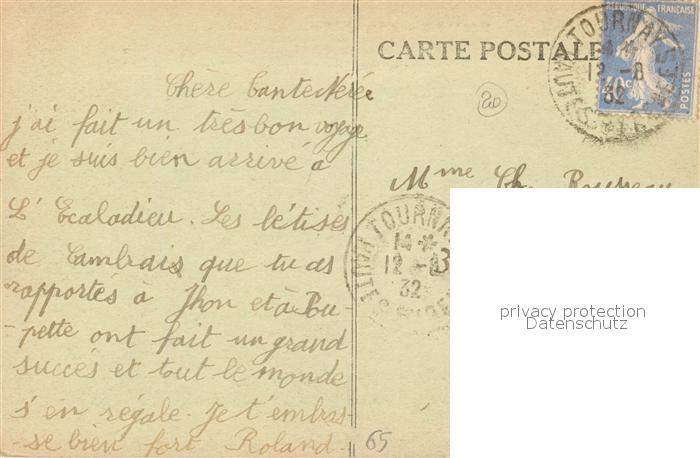 Chère Tante Nérée
j'ai fait un très bon voyage
et je suis bien arrivé à
L'Escaladieu. Les bêtises
de Cambrais que tu as
rapportés à Jhon et à Pou-
-pette ont fait un grand
succès et tout le monde
s'en régale. Je t'embras-
-se bien fort Roland.
65
CARTE POSTALE
20
RÉPUBLIQUE FRANÇAISE
40c
POSTES
TOURNAY
14 *
12 -8
32
HAUTES-PYRÉNÉES
Mme Ch. Rousseau
TOURNAY
14 *
12 -8
32
HAUTES
3
privacy protection
Datenschutz